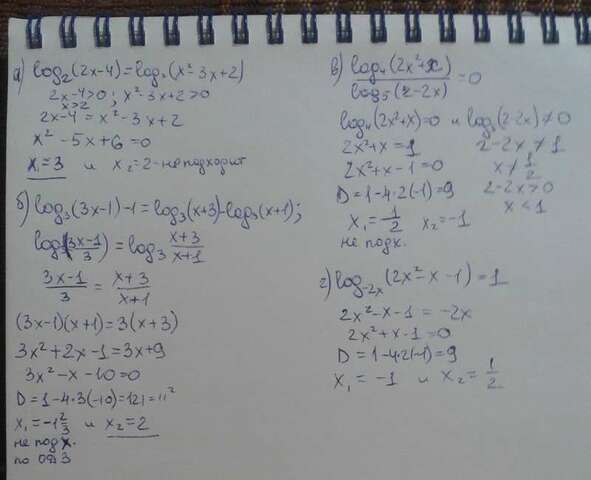 а) log₂(2x-4)=log₂(x²-3x+2)
2x-4>0; x²-3x+2>0
x>2
2x-4=x²-3x+2
x²-5x+6=0
x₁=3 и x₂=2-не подходит
б) log₃(3x-1)-1=log₃(x+3)-log₃(x+1);
log₃(3x-1/3)=log₃ x+3/x+1
3x-1/3 = x+3/x+1
(3x-1)(x+1)=3(x+3)
3x²+2x-1=3x+9
3x²-x-10=0
D=1-4·3(-10)=121=11²
x₁=-1 2/3 и x₂=2
не подх.
по ОДЗ
в) log₄(2x²+x)/log₅(2-2x)=0
log₄(2x²+x)=0 и log₅(2-2x)≠0
2x²+x=1
2-2x≠1
2x²+x-1=0
x≠1/2
D=1-4·2(-1)=9
2-2x>0
x₁=1/2 x₂=-1
x<1
не подх.
г) log₋₂ₓ(2x²-x-1)=1
2x²-x-1=-2x
2x²+x-1=0
D=1-4·2(-1)=9
x₁=-1 и x₂=1/2